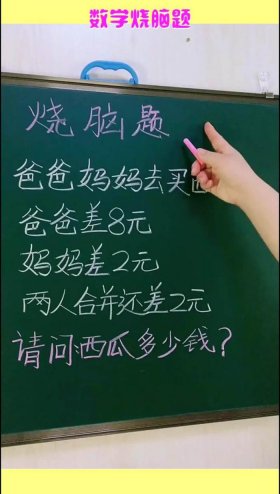 数学烧脑题
烧脑题
爸爸妈妈去买
爸爸差8元
妈妈差2元
两人合并还差2元
请问西瓜多少钱?